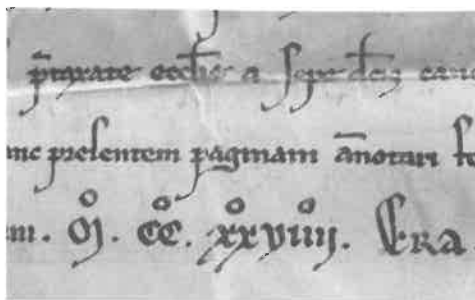 eccl̄ie a sepe dc̄is cano
nc presentem paginam an̄otari
m. M̊. CC̊. xx̊viiij̊. Era